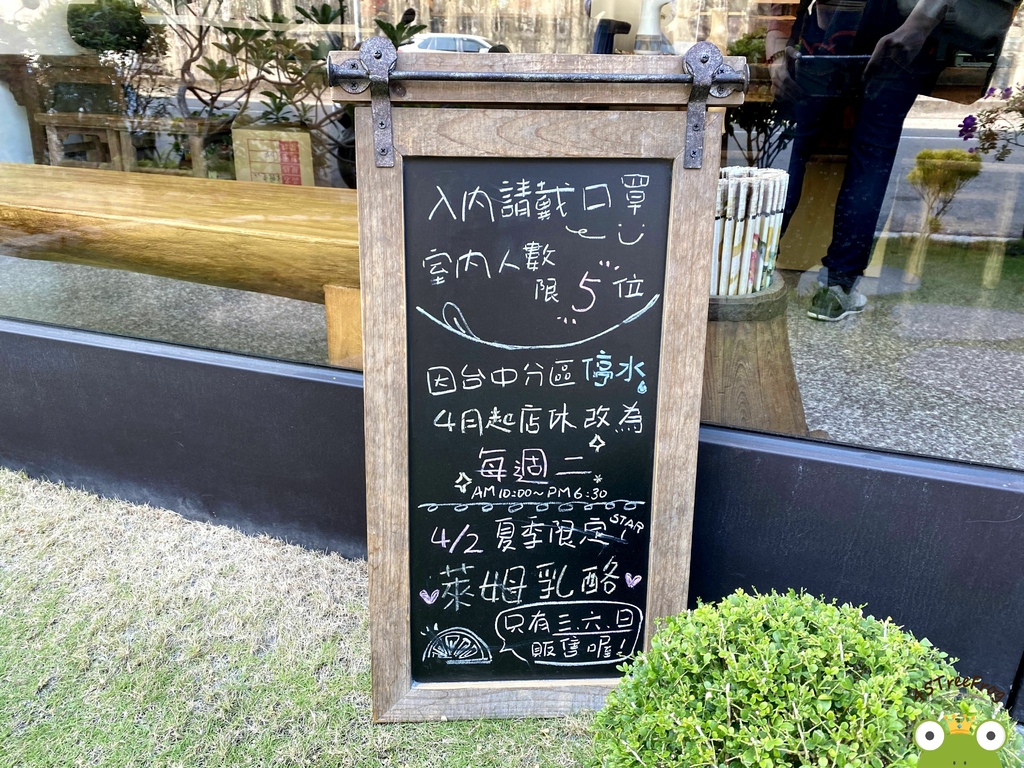 入內請戴口罩
室內人數
限5位
因台中分區停水
4月起店休改為
每週二
AM10:00~PM6:30
4/2 夏季限定 START
萊姆乳酪
只有三.六.日
販售喔!